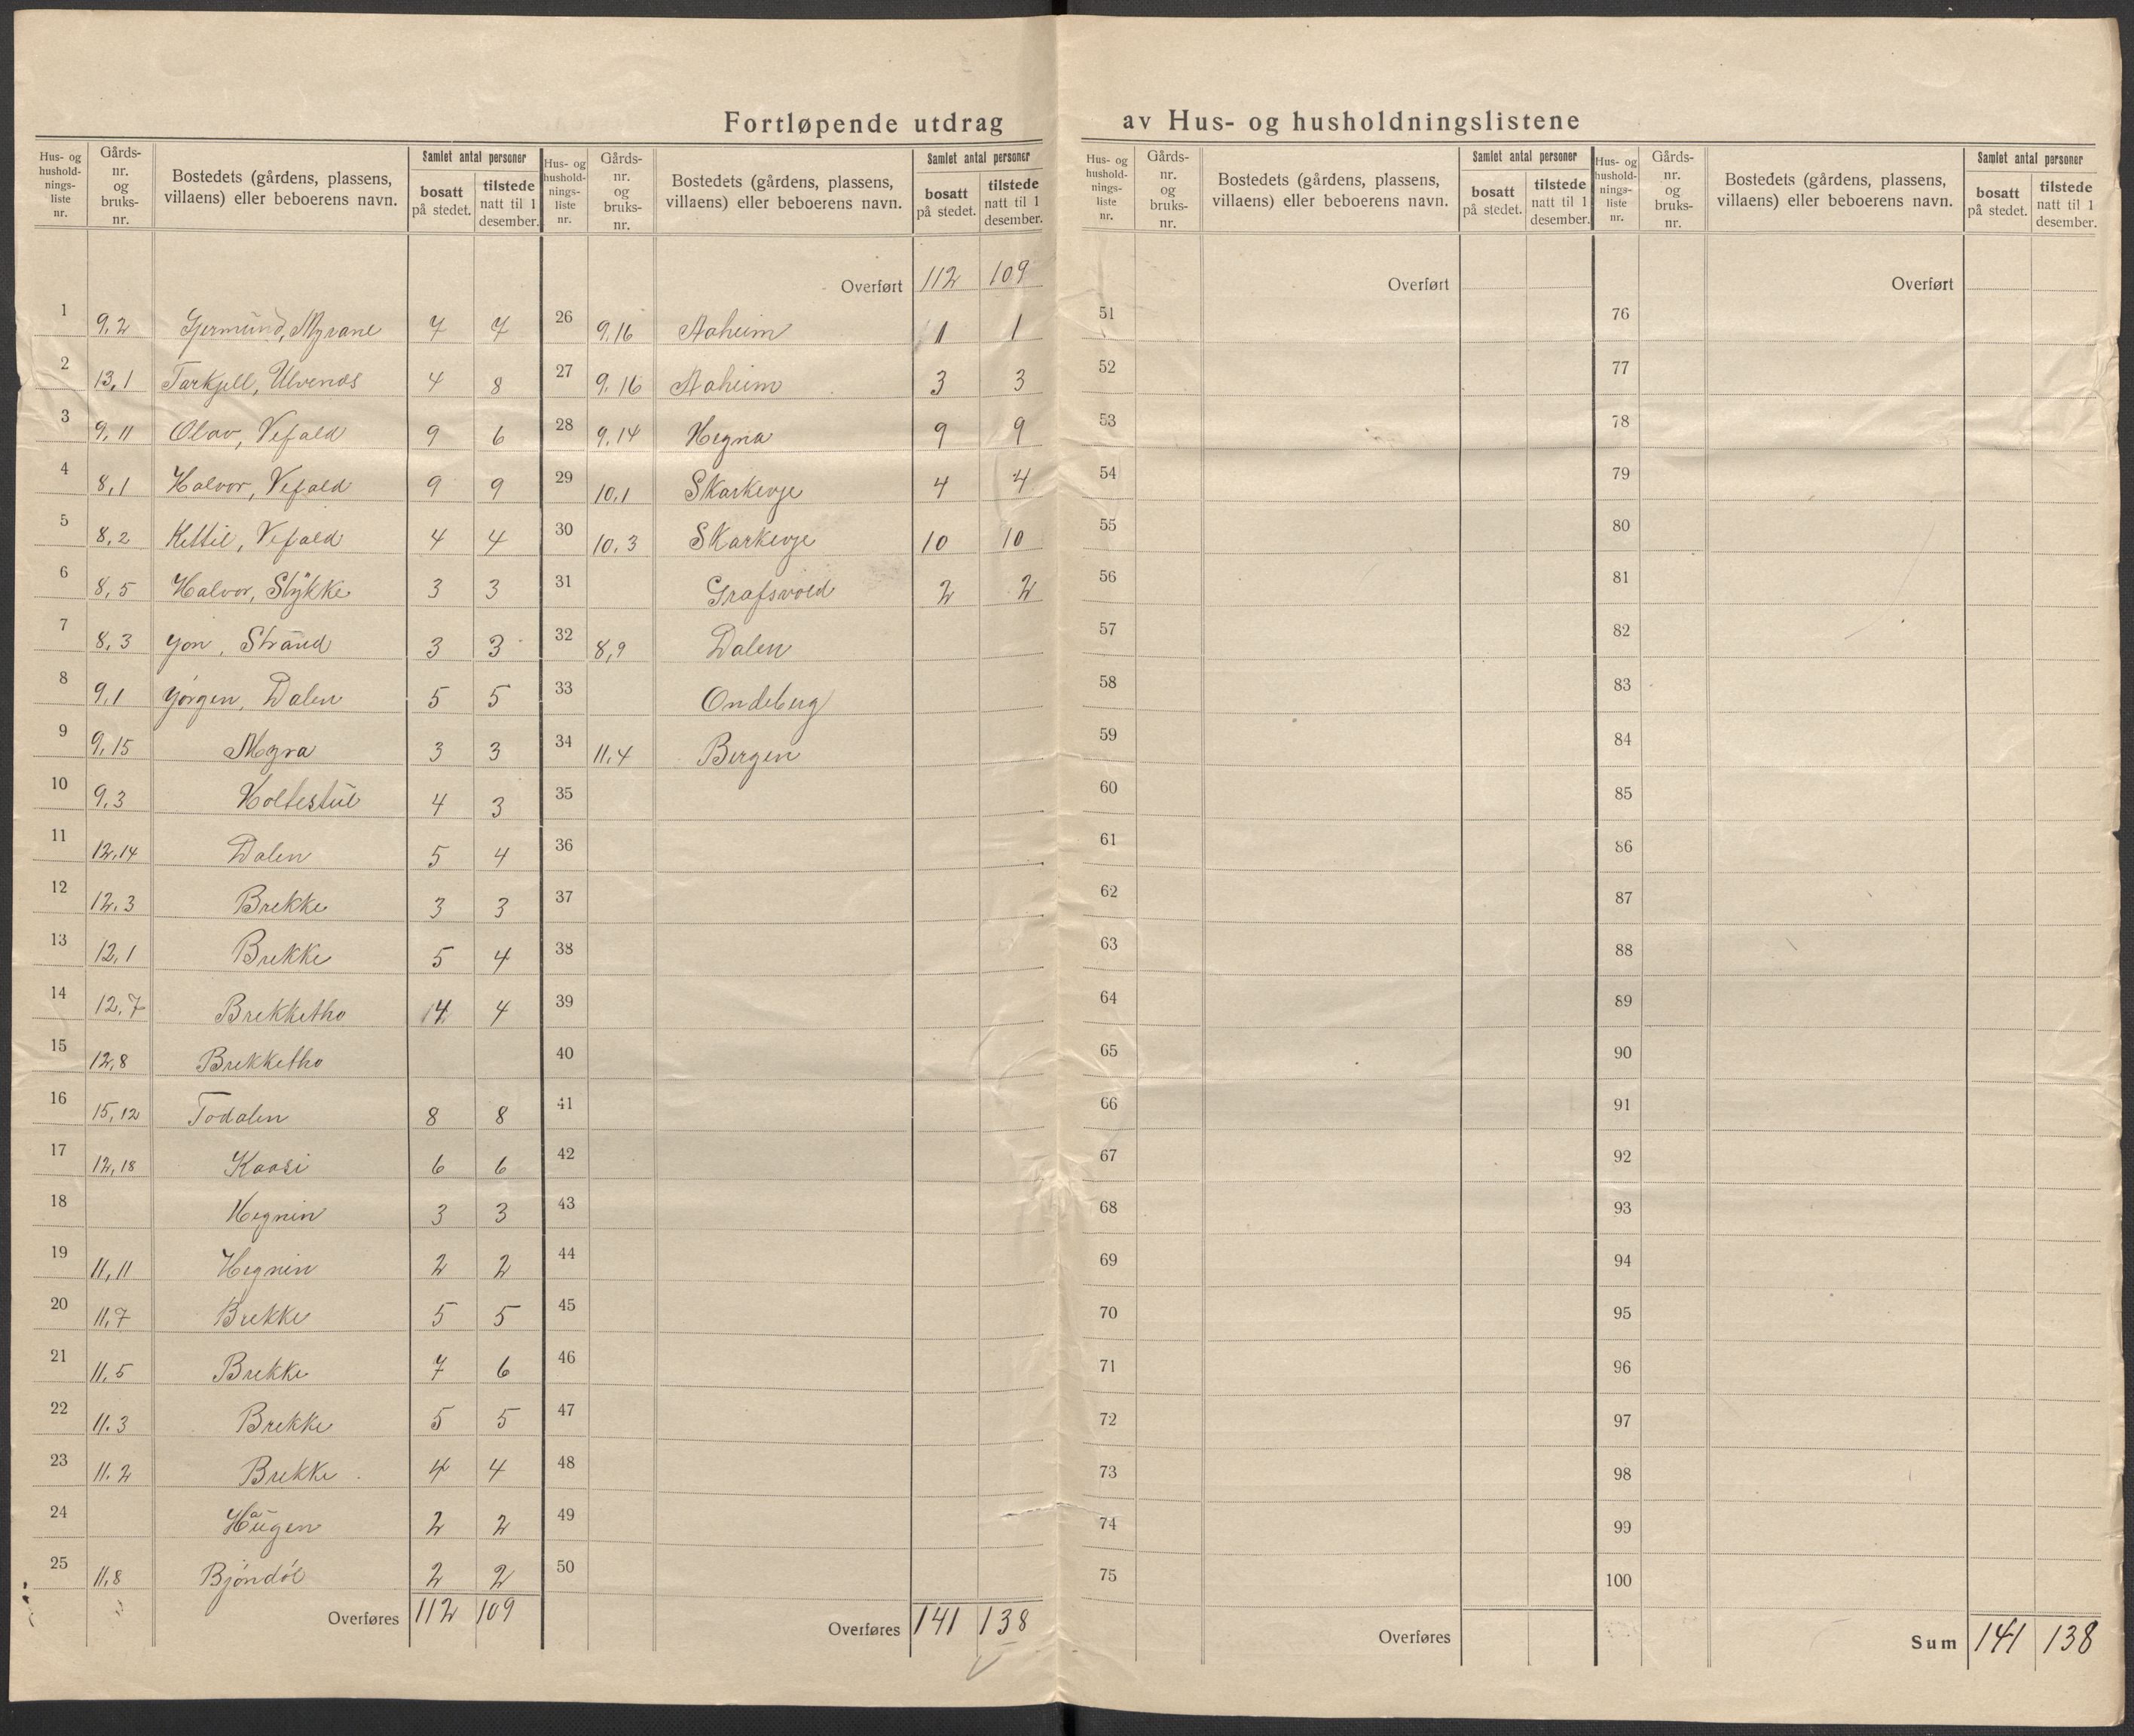 Fortløpende utdrag av Hus- og husholdningslistene
Hus- og hushold- nings- liste nr. | Gårds- nr. og bruks- nr. | Bostedets (gårdens, plassens, villaens) eller beboerens navn. | Samlet antal personer | bosatt på stedet. | tilstede natt til 1 desember.
1 9,2 Gjermund, Myrane 7 7
2 13,1 Tarkjell, Ulvenos 4 8
3 9,11 Olav, Vefald 9 6
4 8,1 Halvor, Vefald 9 9
5 8,2 Kittil, Vefald 4 4
6 8,5 Halvor, Stykke 3 3
7 8,3 Jon, Strand 3 3
8 9,1 Jörgen, Dalen 5 5
9 9,15 Myra 3 3
10 9,3 Holtestul 4 3
11 12,14 Dalen 5 4
12 12,3 Brekke 3 3
13 12,1 Brekke 5 4
14 12,7 Brekketho 4 4
15 12,8 Brekketho
16 15,12 Todalen 8 8
17 12,18 Kaasi 6 6
18 Hegnin 3 3
19 11,11 Hegnin 2 2
20 11,7 Brekke 5 5
21 11,5 Brekke 7 6
22 11.3 Brekke 5 5
23 11.2 Brekke 4 4
24 Haugen 2 2
25 11,8 Bjöndöl 2 2
Overføres 112 109
Hus- og hushold- nings- liste nr. | Gårds- nr. og bruks- nr. | Bostedets (gårdens, plassens, villaens) eller beboerens navn. | Samlet antal personer | bosatt på stedet. | tilstede natt til 1 desember.
Overført 112 109
26 9,16 Aaheim 1 1
27 9,16 Aaheim 3 3
28 9,14 Hegna 9 9
29 10,1 Skarkevje 4 4
30 10,3 Skarkevje 10 10
31 Grafsvold 2 2
32 8,9 Dalen
33 Ondeberg
34 11,4 Bergen
35
36
37
38
39
40
41
42
43
44
45
46
47
48
49
50
Overføres 141 138
Hus- og hushold- nings- liste nr. | Gårds- nr. og bruks- nr. | Bostedets (gårdens, plassens, villaens) eller beboerens navn. | Samlet antal personer | bosatt på stedet. | tilstede natt til 1 desember.
Overført
51
52
53
54
55
56
57
58
59
60
61
62
63
64
65
66
67
68
69
70
71
72
73
74
75
Overføres
Hus- og hushold- nings- liste nr. | Gårds- nr. og bruks- nr. | Bostedets (gårdens, plassens, villaens) eller beboerens navn. | Samlet antal personer | bosatt på stedet. | tilstede natt til 1 desember.
Overført
76
77
78
79
80
81
82
83
84
85
86
87
88
89
90
91
92
93
94
95
96
97
98
99
100
Sum 141 138